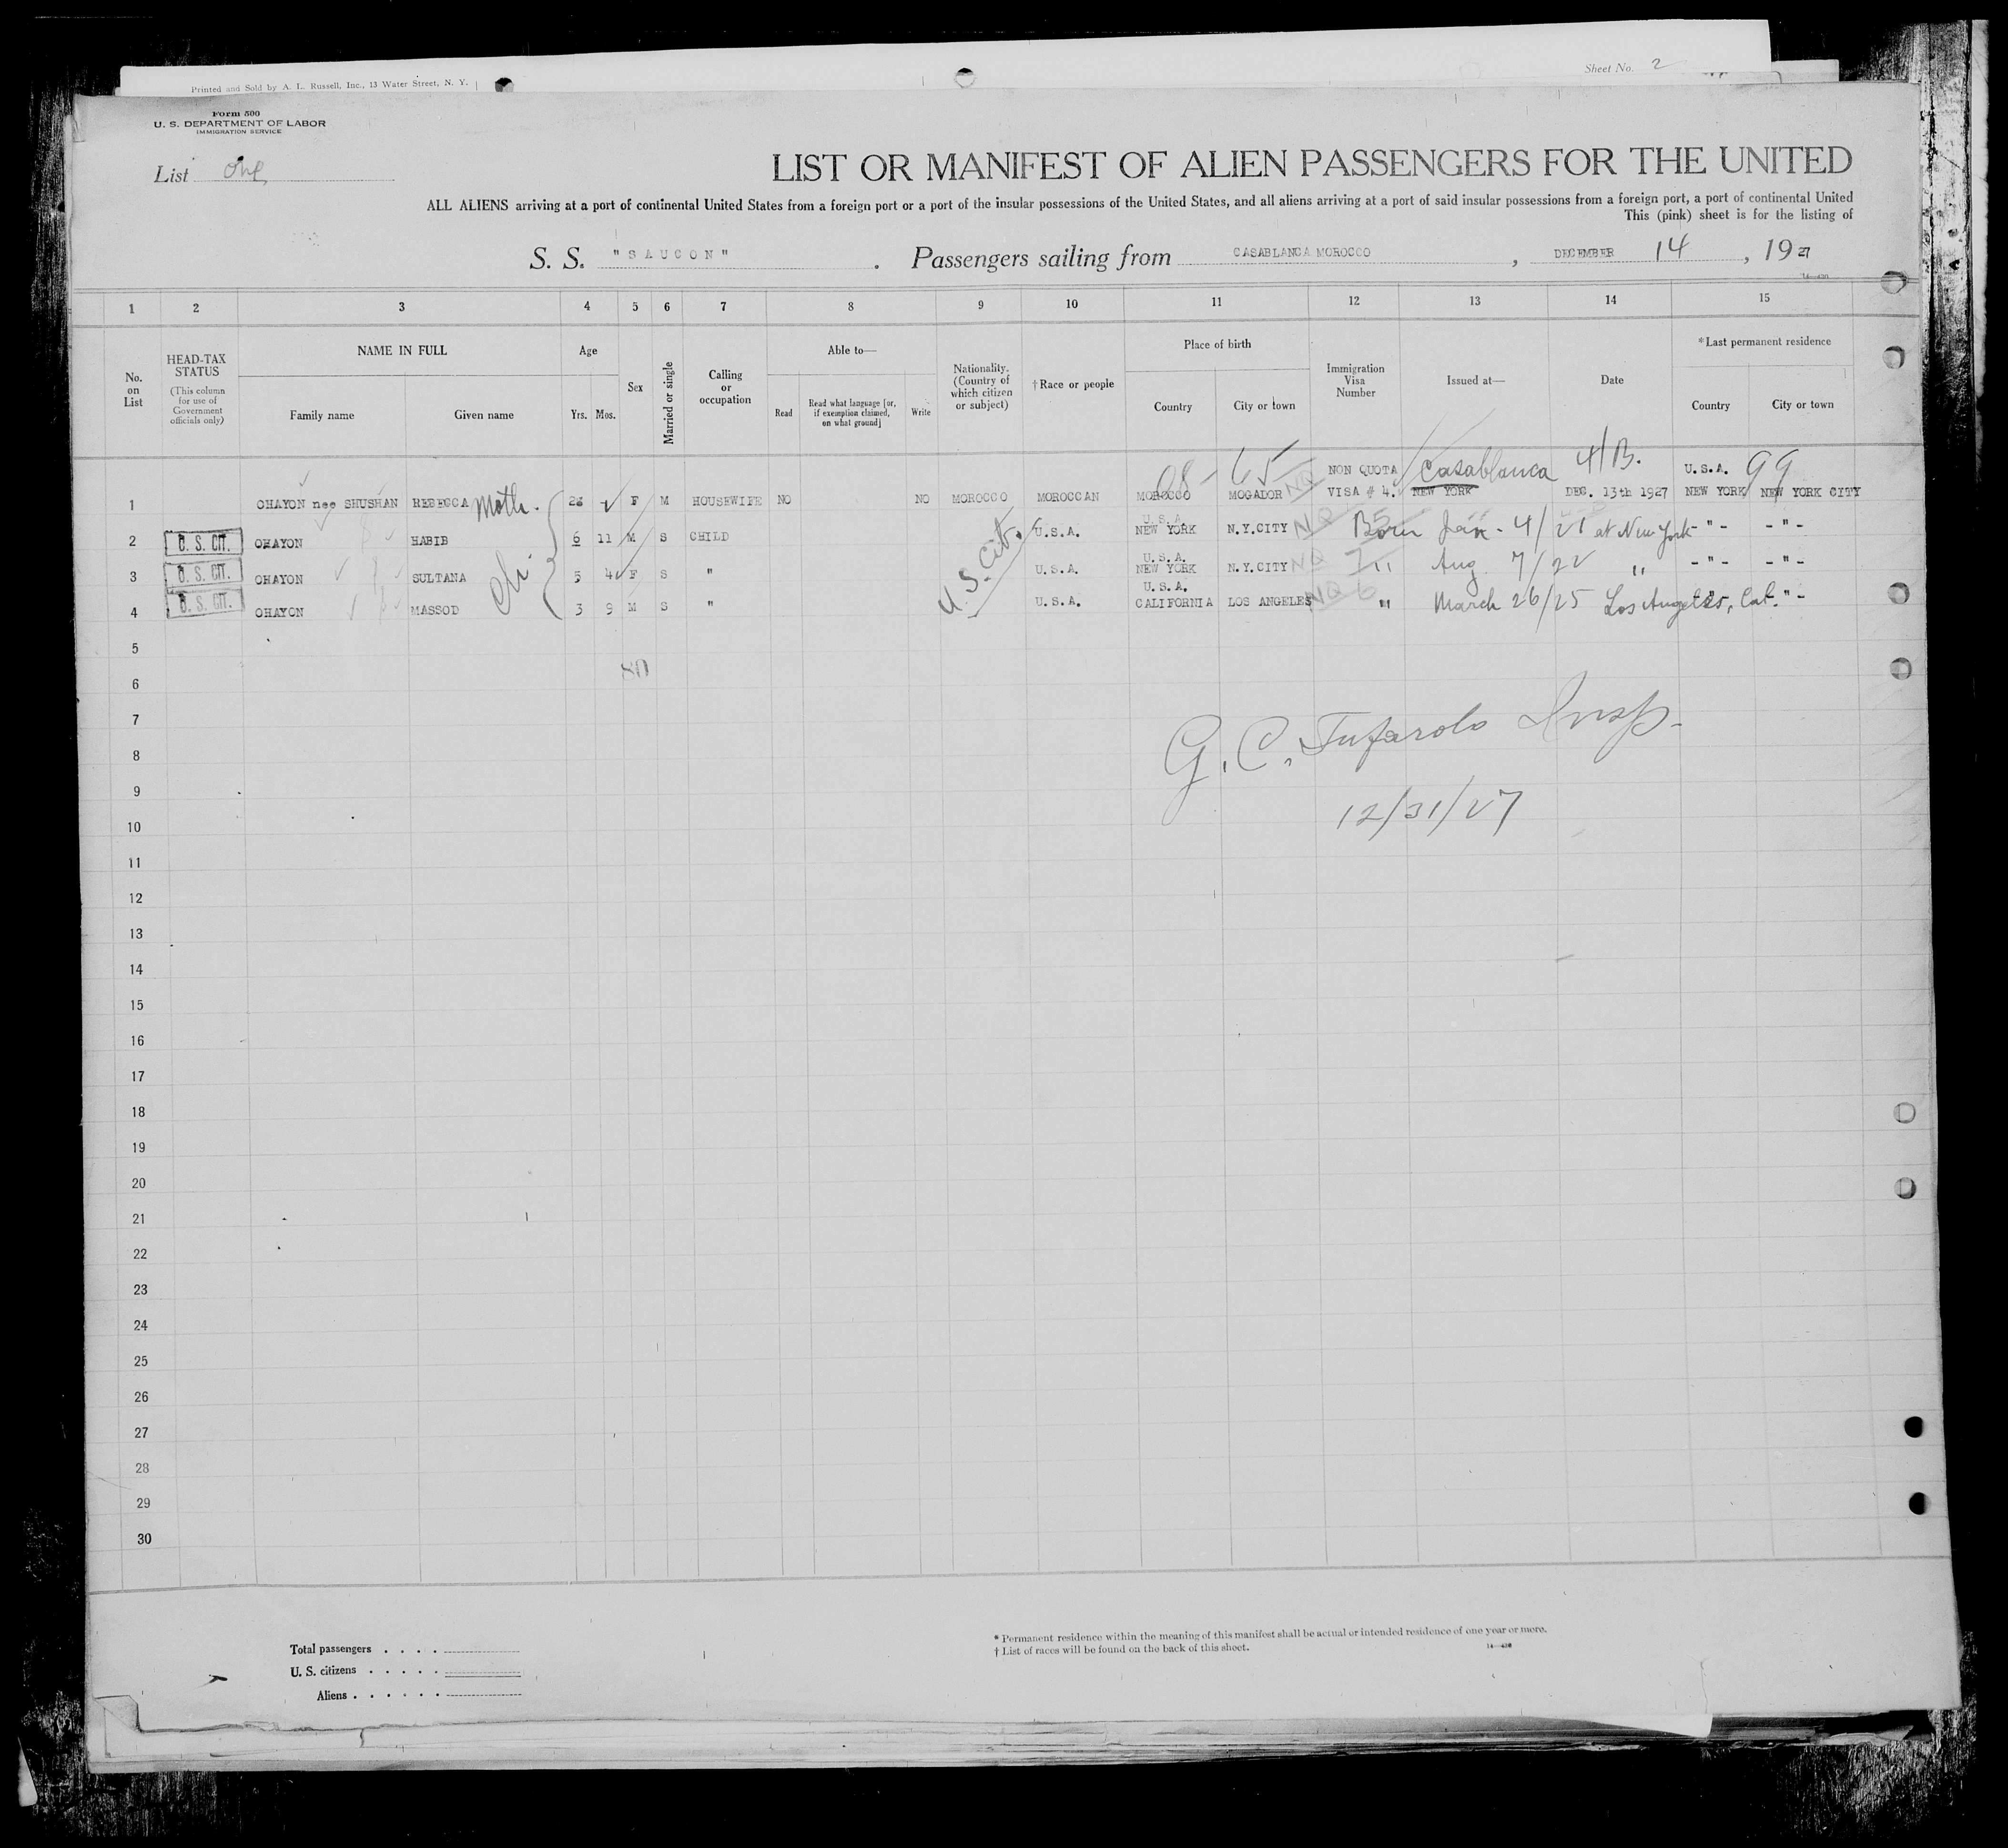 Printed and Sold by A. L. Russell, Inc., 13 Water Street, N. Y.
Sheet No. 2
Form 500
U. S. DEPARTMENT OF LABOR
IMMIGRATION SERVICE
List one
LIST OR MANIFEST OF ALIEN PASSENGERS FOR THE UNITED
ALL ALIENS arriving at a port of continental United States from a foreign port or a port of the insular possessions of the United States, and all aliens arriving at a port of said insular possessions from a foreign port, a port of continental United
This (pink) sheet is for the listing of
S. S. "SAUCON" . Passengers sailing from CASABLANCA MOROCCO , DECEMBER 14 , 1927
1 2 3 4 5 6 7 8 9 10 11 12 13 14 15
No. on List
HEAD-TAX STATUS (This column for use of Government officials only)
NAME IN FULL
Family name Given name
Age
Yrs. Mos.
Sex
Married or single
Calling or occupation
Able to—
Read
Read what language [or, if exemption claimed, on what ground]
Write
Nationality. (Country of which citizen or subject)
†Race or people
Place of birth
Country City or town
Immigration Visa Number
Issued at—
Date
*Last permanent residence
Country City or town
08-65 NQ NON QUOTA Casablanca 4/B. U.S.A. 99
1 OHAYON nee SHUSHAN REBECCA Moth. 28 F M HOUSEWIFE NO NO MOROCCO MOROCCAN MOROCCO MOGADOR VISA # 4. NEW YORK DEC. 13th 1927 NEW YORK NEW YORK CITY
2 U. S. CIT. OHAYON HABIB 6 11 M S CHILD U.S.A. U.S.A. NEW YORK N.Y.CITY NQ 5 Born Jan - 4/21 at New York -"- -"-
3 U. S. CIT. OHAYON SULTANA 5 4 F S " U.S.A. U.S.A. NEW YORK N.Y.CITY NQ 7 " Aug. 7/22 " -"- -"-
4 U. S. CIT. OHAYON MASSOD 3 9 M S " U.S.A. U.S.A. CALIFORNIA LOS ANGELES NQ 6 " March 26/25 Los Angeles, Cal. -"-
Chi
U.S. Cit.
5
6
80
7
G. C. Tufarolo Insp.
8
9
12/31/27
10
11
12
13
14
15
16
17
18
19
20
21
22
23
24
25
26
27
28
29
30
Total passengers . . . .
U. S. citizens . . . . .
Aliens . . . . . .
* Permanent residence within the meaning of this manifest shall be actual or intended residence of one year or more.
† List of races will be found on the back of this sheet.
14—430